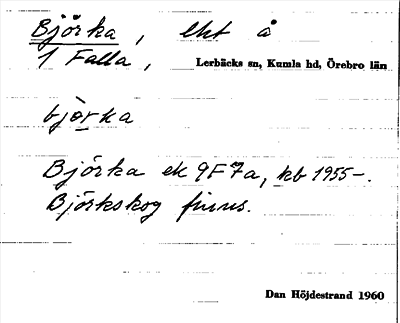 Björka, ekt å
1 Falla, Lerbäcks sn, Kumla hd, Örebro län
bjòrka
Björka ek 9F7a, kb 1955-.
Björkskog finns.
Dan Höjdestrand 1960